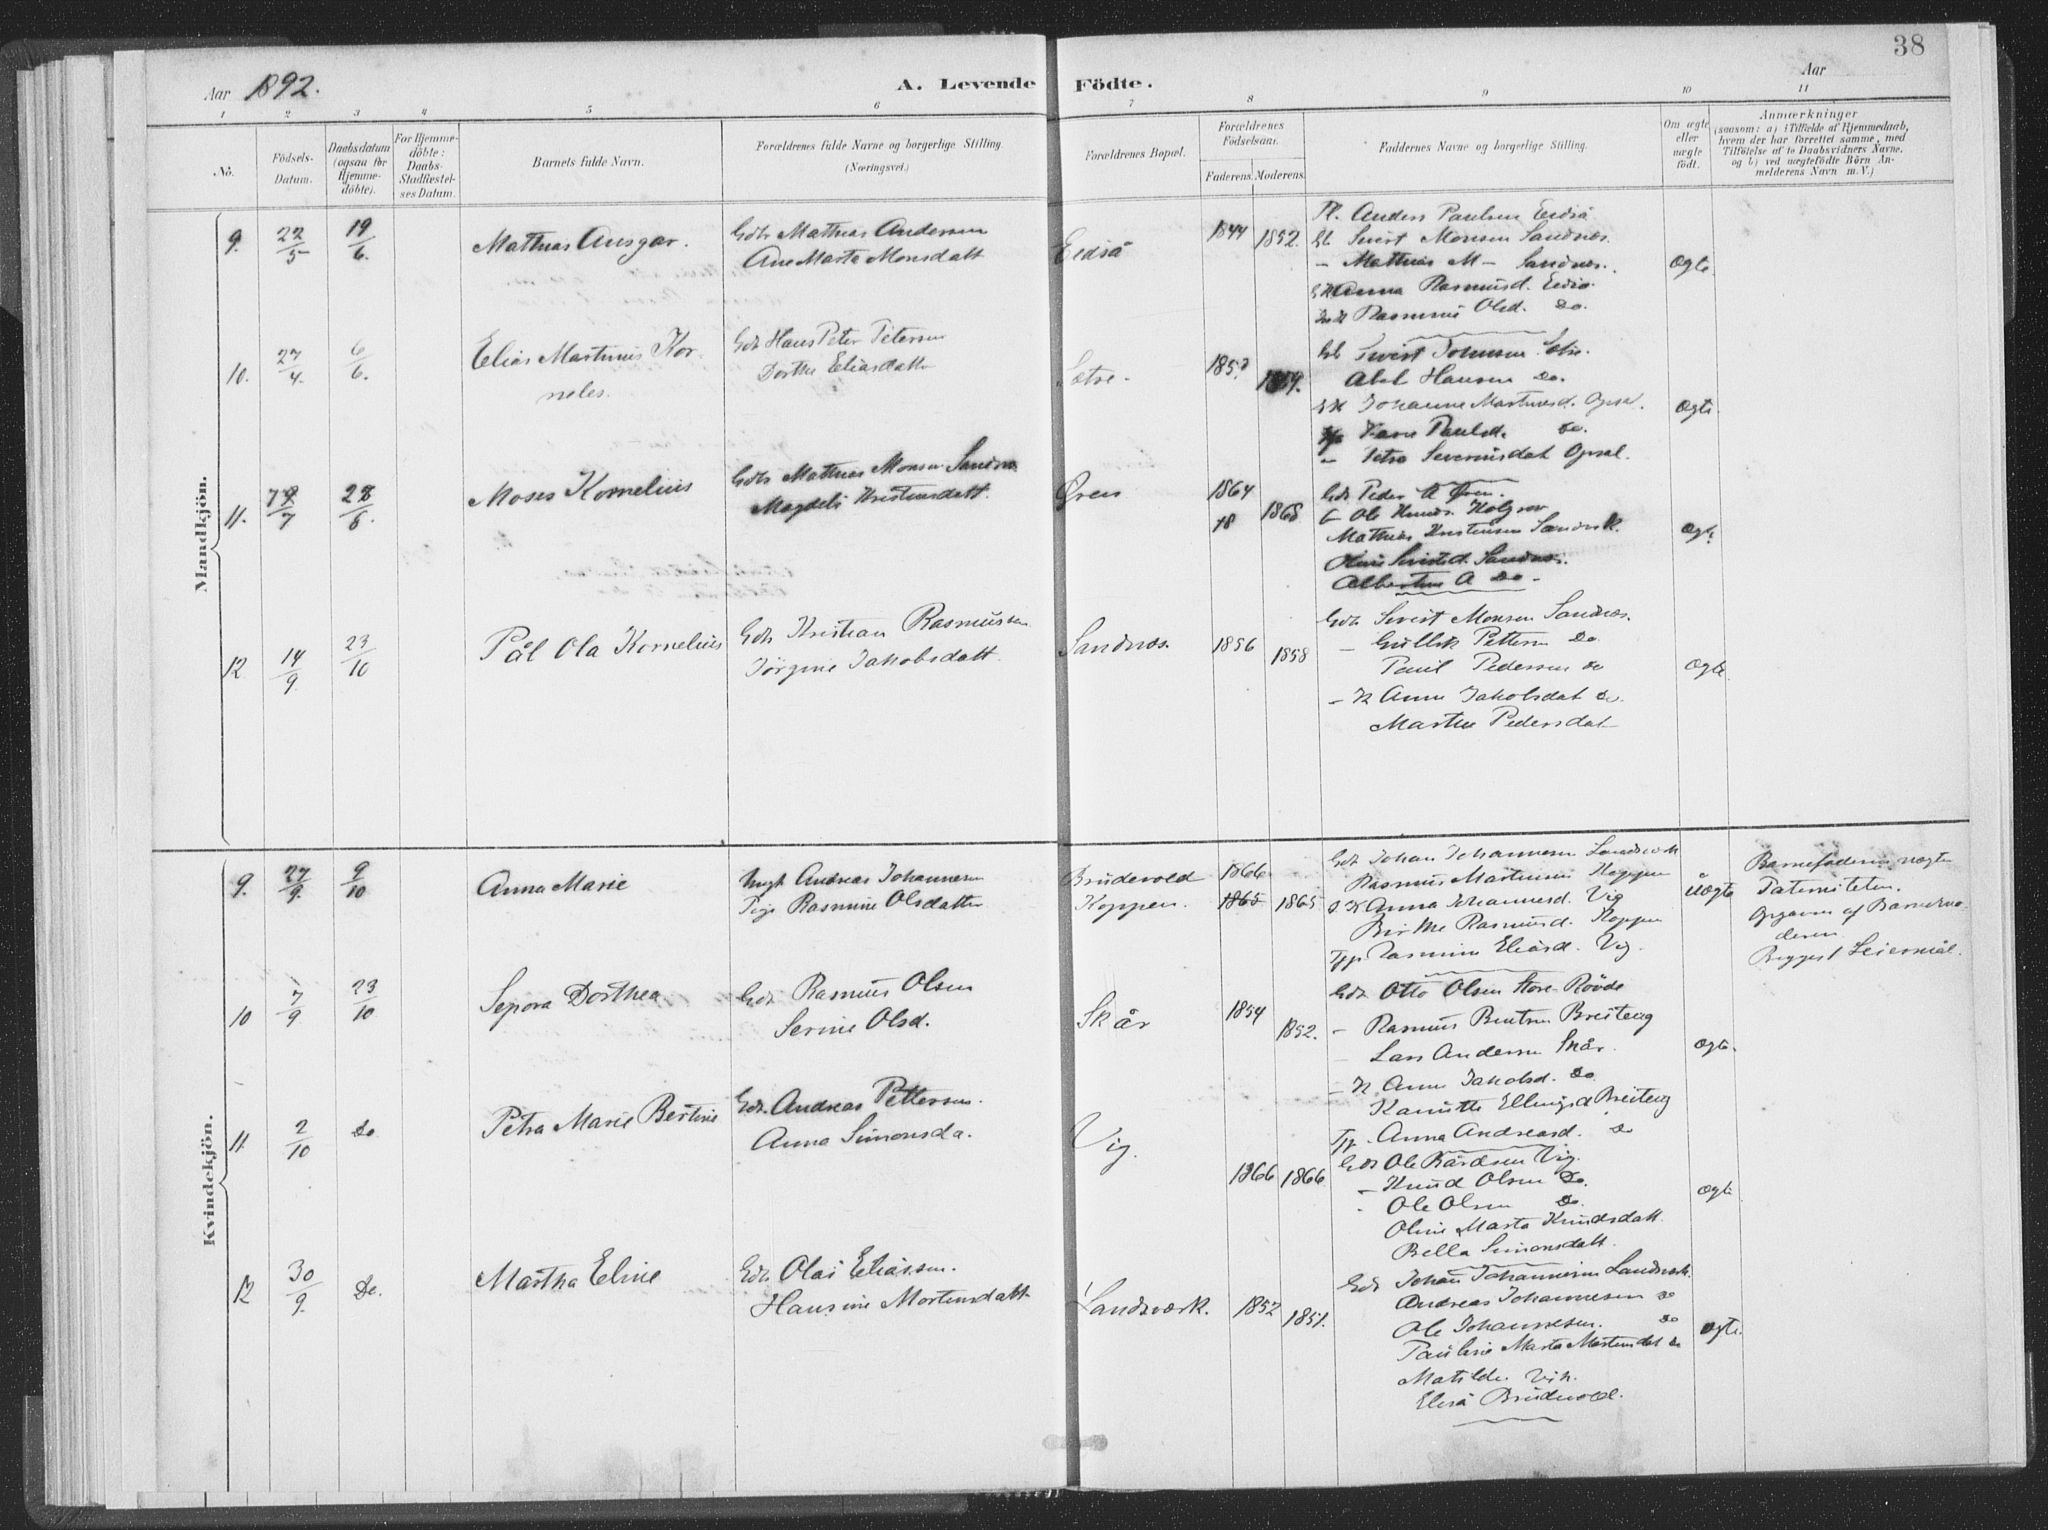 38
Aar 1892.
A. Levende Födte.
Aar
1 2 3 4 5 6 7 8 9 10 11
No.
Födsels-Datum.
Daabsdatum (ogsaa for Hjemmedöbte).
For Hjemmedöbte: Daabs-Stadfæstelses Datum.
Barnets fulde Navn.
Forældrenes fulde Navne og borgerlige Stilling.
(Næringsvei.)
Forældrenes Bopæl.
Forældrenes Födselsaar.
Faderens. Moderens.
Faddernes Navne og borgerlige Stilling.
Om ægte eller uægte födt.
Anmærkninger
(saasom: a) i Tilfælde af Hjemmedaab,
hvem der har forrettet samme, med
Tilföielse af to Daabsvidners Navne,
og b) ved uægtefödte Börn An-
melderens Navn m. V.)
Mandkjön.
9. 22/5 19/6. Mattias Ansgar. Gdbr Mathias Andersen
Ane Marta Monsdatt
Eidså 1844 1852.
Pl. Anders Paulsen Eidså
Gb Sivert Monsen Sandnæs.
- Mathias M- Sandnæs.
Anna Rasmusd. Eidså.
Rasmine Olsd. Do.
Ægte.
10. 27/4. 6/6. Elias Martinus Kor-
neles.
Gdb Hans Peter Petersen
Dorthe Eliasdatter
Sætre.
Gb Sivert Johnsen Sætre.
Abel Hansen Do.
Johanne Martinusd. Opsal.
Karen Paulsd. Do.
- Petra Severinsdat Opsal.
Ægte.
11. 28/6. Moses Kornelius
Gdbr Mathias Monsen Sandnæs
Magdeli Kristensdatt.
Øren 1864 1868
Gdb Peder A Øren.
Ole Knuds.
Mathias Kristensen Sandvk.
Oline Sivertsd. Sandnæs.
Albertine A Do -
Ægte
12 14/9. 23/10 Pål Ola Kornelius
Gdb Kristian Rasmussen
Jørgine Jakobsdatt.
Sandnæs. 1856 1858
Gdb Sivert Monsen Sandnæs.
- Gullik Pettersen Do
Paul Pedersen Do
- K Anne Jakobsdat Do.
Marthe Pedersdat
Ægte
Kvindekjön.
9. 27/9. 9/10 Anna Marie
Ungk Andreas Johannesen
Pige Rasmine Olsdatter
Brudevold
Koppen.
1866
1865 1865
Gdb Johan Johannesen Landsverk
Rasmus Martinus Koppen
Anna Johannesd. Vig
Birthe Rasmusd. Koppen
Rasmine Eliasd. Vig.
Uægte
Barnefaderen nægter
Paterniteten.
Opgaven af Barnemo-
deren.
Begges 1 Leiermål.
10 7/9 23/10 Sepora Dorthea
Gdb Rasmus Olsen
Serine Olsd.
Skår 1854 1852.
Gdb Otto Olsen Store-Røvde
- Rasmus Bentsen Breiteig
Lars Andersen Skår.
- K Anne Jakobsd. Do.
Kanutte Ellingsd Breiteig
Anna Andreasd. Do
Ægte.
11. 2/10 Do Petra Marie Bertine
Gdb. Andreas Pettersen.
Anna Simonsda.
Vig. 1866 1866
Gdb Ole Bårdsen Vig.
- Knud Olsen Do.
- Ole Olsen Do.
Oline Marta Knudsdatt.
Bella Simonsdatt.
Ægte
12 30/9. Do. Martha Eline
Gdb Olai Eliassen.
Hansine Mortensdatt.
Landsværk. 1852 1851.
Gdb Johan Johannesen Landsverk.
Andreas Johannesen Do
Ole Johannesen. Do
Pauline Marta Mortensdat Do
Matilde Vik.
Elisa Brudevold.
Ægte.